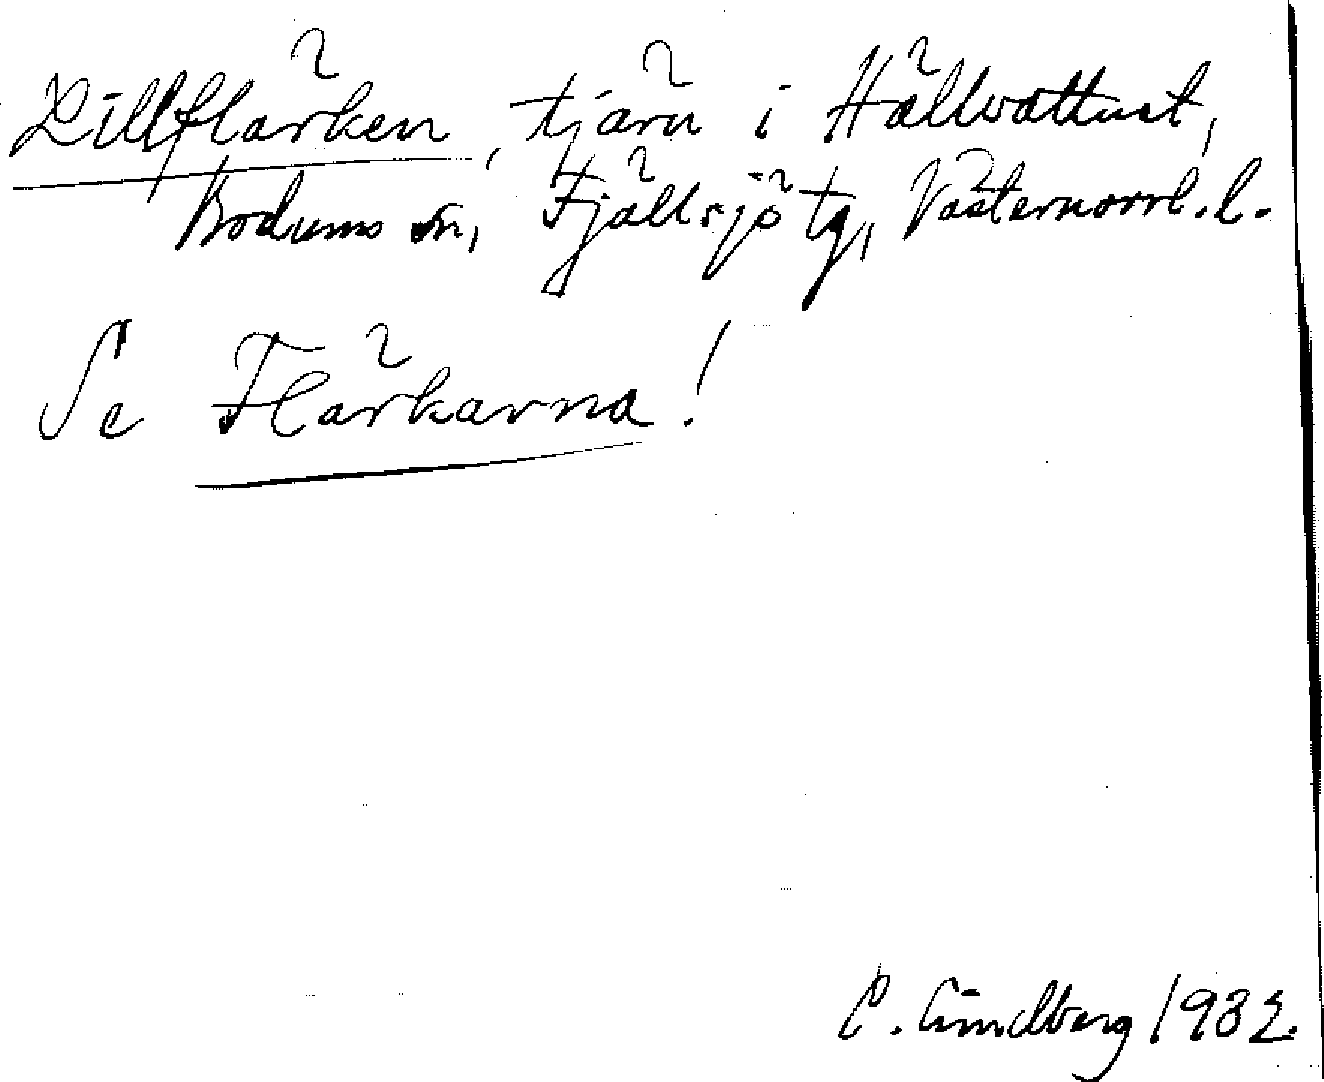 Lillflärken, tjärn i Hällvattnet,
Bodums sn, Fjällsjö tg, Västernorrl. l.
Se Flärkarna!
C. Lindberg 1932.